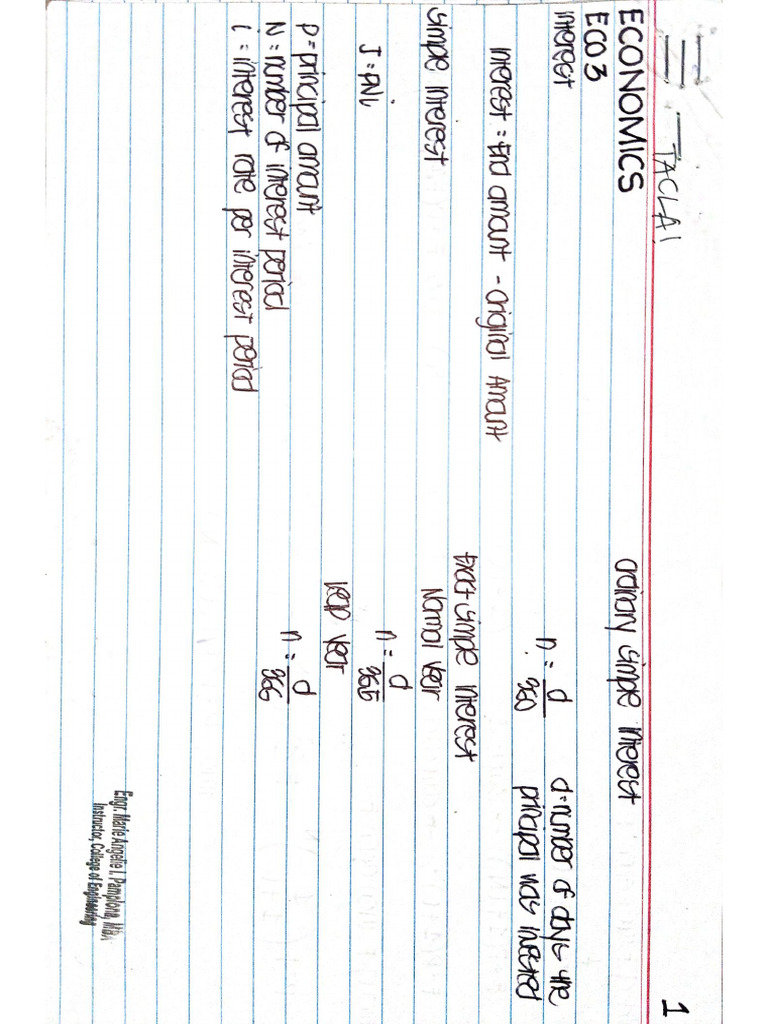 TACLA!
1
ECONOMICS
ECO 3
interest
interest = End amount - original Amount
simple interest
I = PNi
P = principal amount
N = number of interest period
i = interest rate per interest period
ordinary simple interest
n = d/360
d = number of days the
principal was invested
Exact simple interest
Normal Year
n = d/365
leap year
n = d/366
Engr. Marie Angelie I. Pamplona, MBA
Instructor, College of Engineering